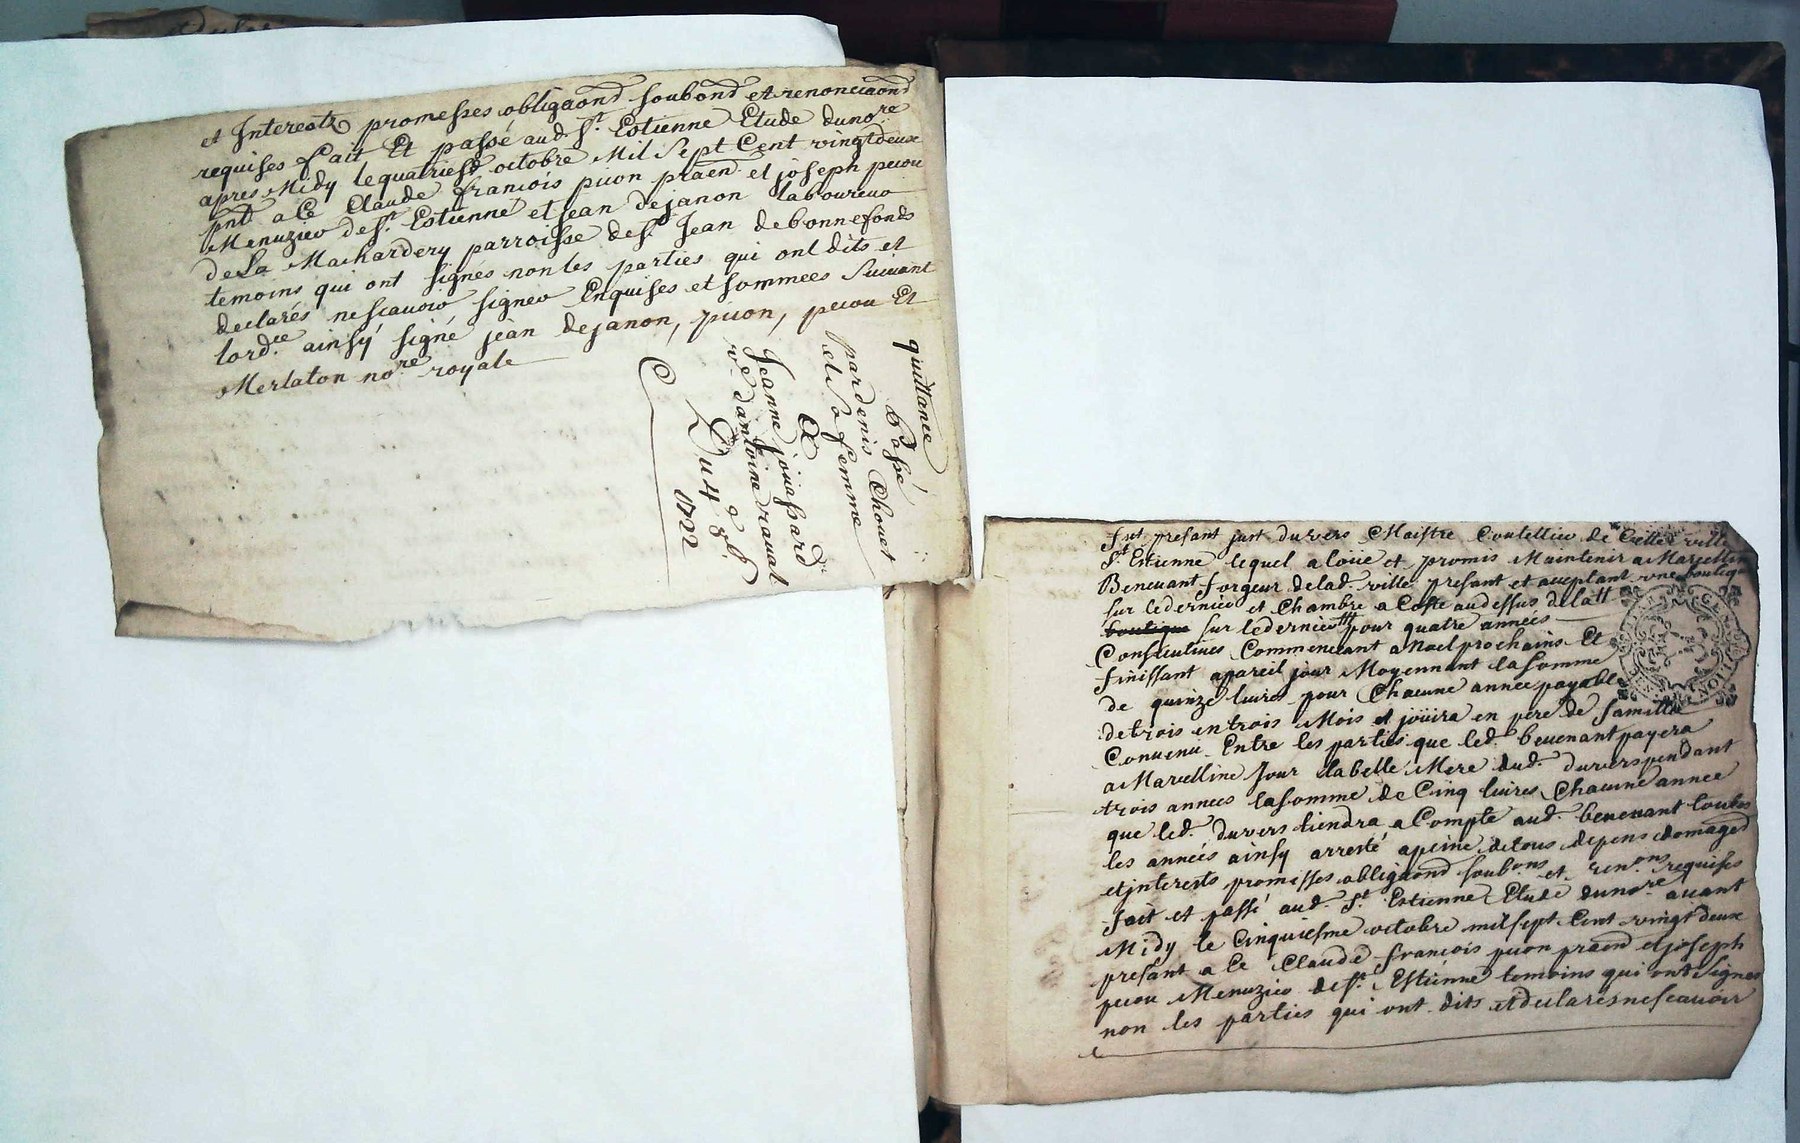 et Interests promesses obligaond soubond et renonciaond
requises fait Et passé aud. St. Estienne Etude du nore
apres Midy le quatriesᵉ octobre Mil Sept Cent vingt deux
pnt a Ce Claude francois picon praen et joseph picou
Menuzier de St. Estienne et jean de janon laboureur
de La Machardery parroisse de St. Jean de bonnefonds
temoins qui ont signés non les parties qui ont dits et
declarés ne scauoir signer Enquises et sommees Suiuant
lordce. ainsÿ signé jean de janon, picon, picou Et
Merlaton nore royale
quittance
passé
par denis Chouet
et sa femme
A
Jeanne jouassard
ve. dantoine rauat
Du 4e 8b
1722
St. presant jean duvers Maistre Coutellier de Cette ville
St. Estienne lequel a loüé et promis Maintenir a Marcellin
Beneuant forgeur de lad. ville presant et aceptant vne boutique
sur le dernier et Chambre a Coste audessus de latt
boutique sur le dernier pour quatre années
Consecutiues Commencant a Noel prochains Et
finissant a pareil jour Moyennant la somme
de quinze liures pour Chacune année payable
de trois en trois Mois et joüira en pere de famille
Conuenu Entre les parties que led. beneuant payera
a Marcelline jour la belle Mere dud. duvers pendant
trois années la somme de Cinq liures Chacune annee
que led. duvers tiendra a Compte aud. beneuant toutes
les années ainsy arresté a peine de tous depens domaged
et jnterests promesses obligaond soubons. et renons. requises
fait et passé aud. St. Estienne Etude du nore. auant
Midy le Cinquiesme octobre mil sept Cent vingt deux
presant a Ce Claude francois picon praen et joseph
picou Menuzier de St. Estienne temoins qui ont signes
non les parties qui ont dits et declarés ne scauoir